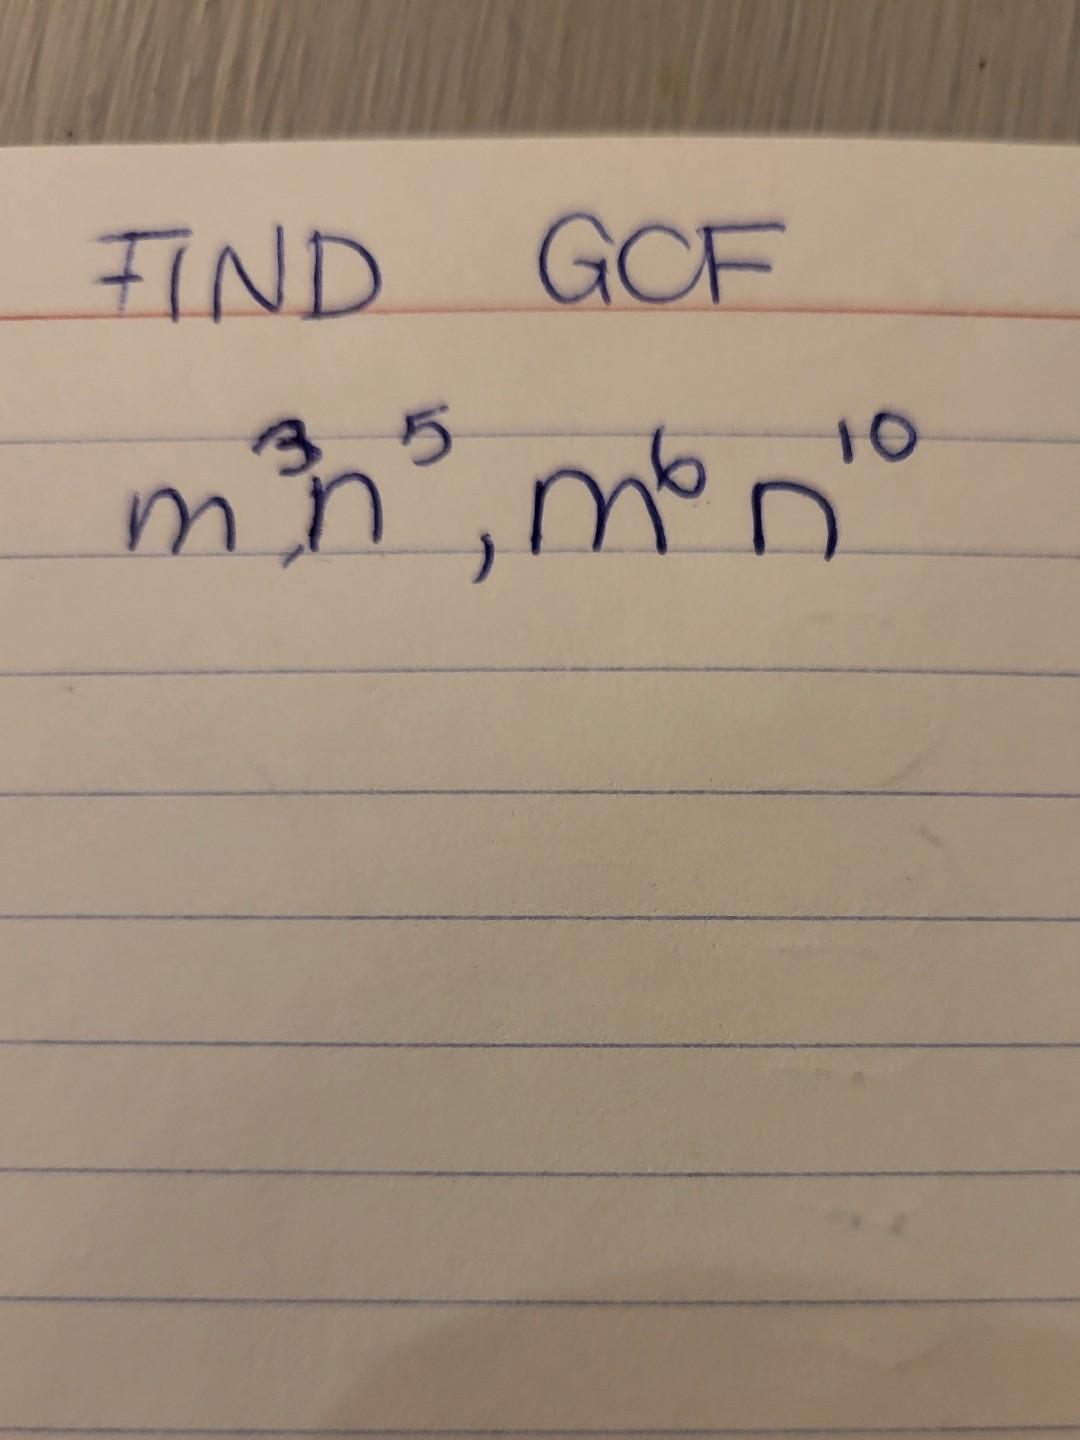 FIND GCF
m³n⁵, m⁶n¹⁰